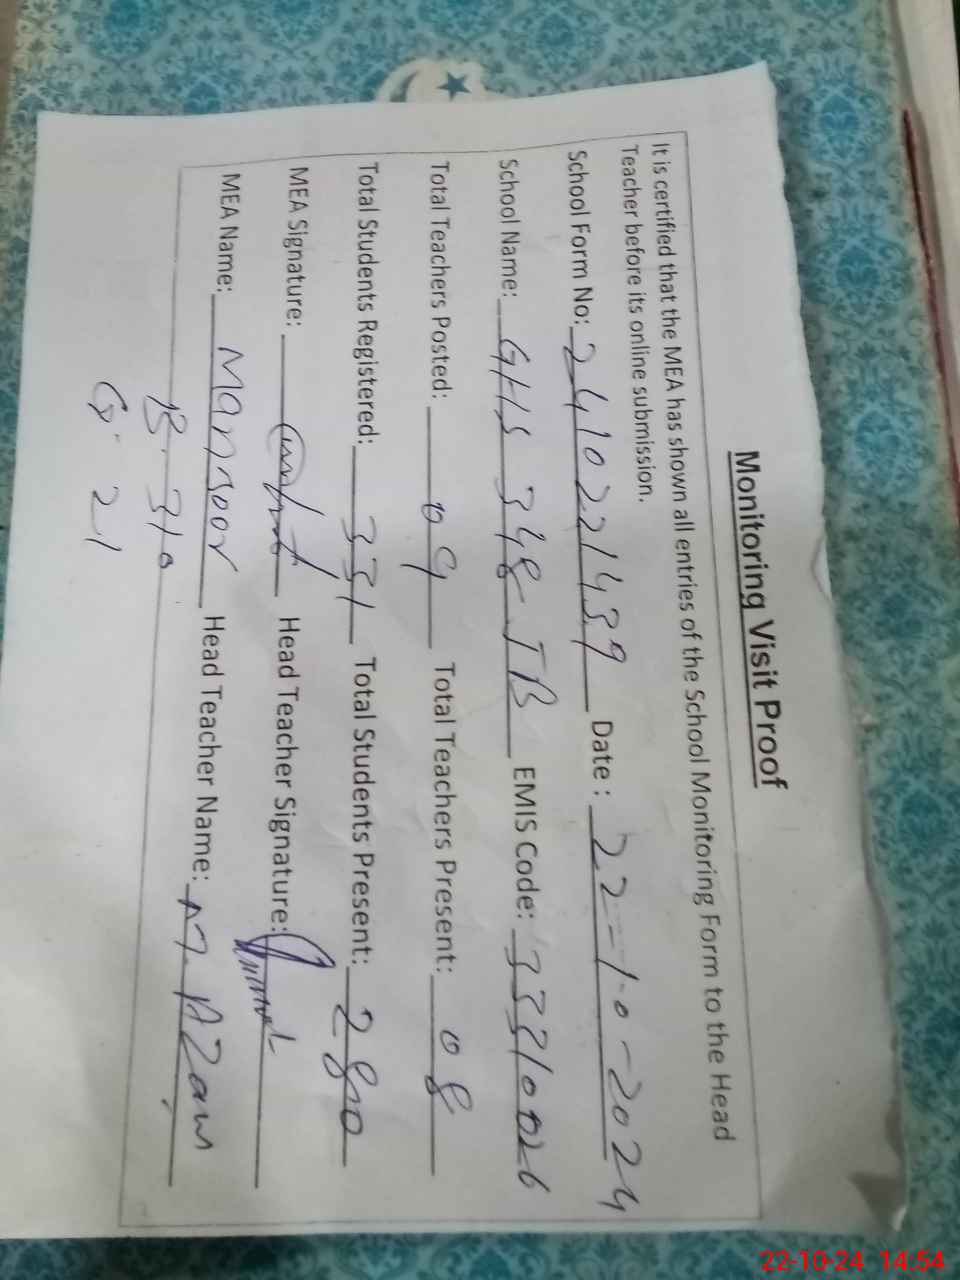 Monitoring Visit Proof
It is certified that the MEA has shown all entries of the School Monitoring Form to the Head
Teacher before its online submission.
School Form No: 2410221439 Date : 22-10-2024
School Name: GHS 348 JB EMIS Code: 33310026
Total Teachers Posted: 09 Total Teachers Present: 08
Total Students Registered: 331 Total Students Present: 280
MEA Signature: Head Teacher Signature:
MEA Name: Mansoor Head Teacher Name: M. Azam
B. 310
G. 21
22-10-24 14:54